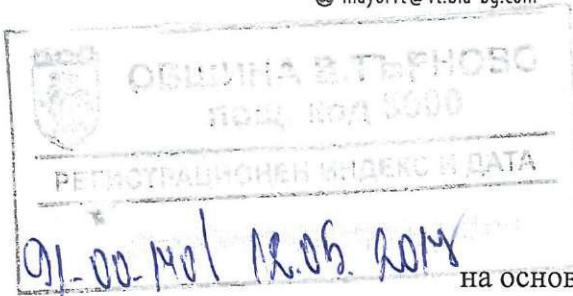 mayorvt@vt.bia-bg.com
ОБЩИНА В.ТЪРНОВО
ПОЩ. КОД 5000
РЕГИСТРАЦИОНЕН ИНДЕКС И ДАТА
91-00-140/ 12.05.
на основ